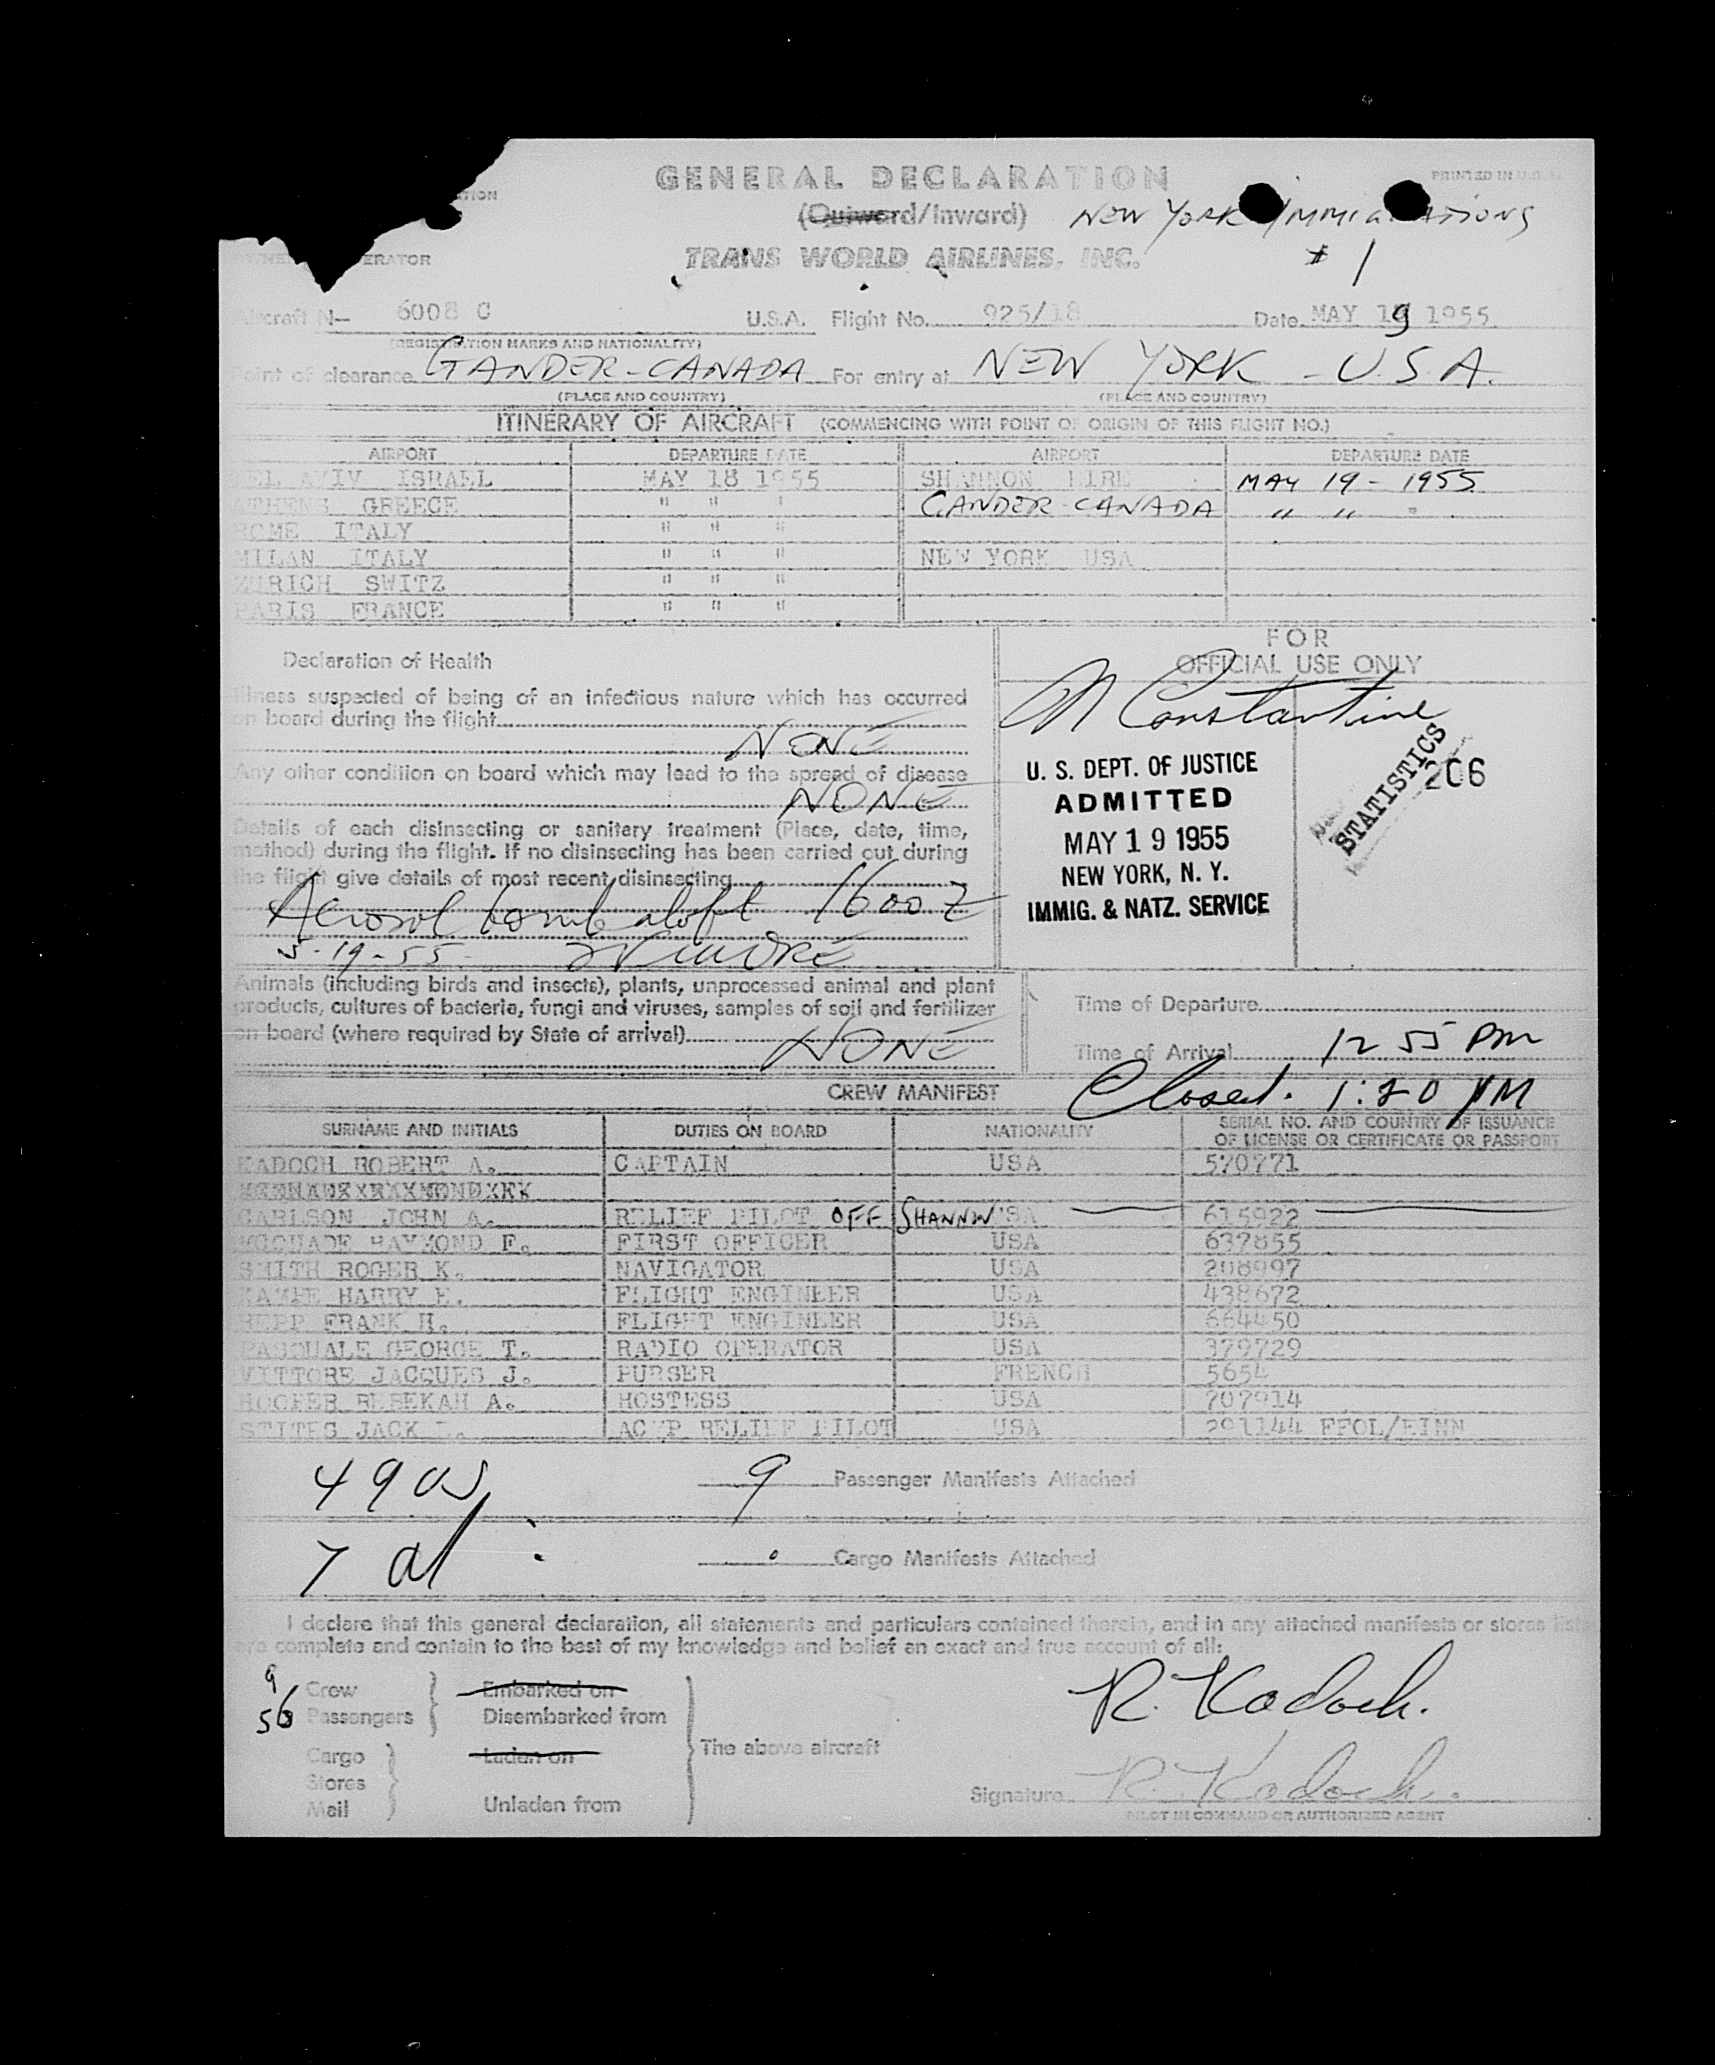 GENERAL DECLARATION
PRINTED IN U.S.A.
(Outward/Inward) NEW YORK IMMIGRATIONS
TRANS WORLD AIRLINES, INC. # 1
Aircraft N— 6008 C U.S.A. Flight No. 925/18 Date MAY 19 1955
(REGISTRATION MARKS AND NATIONALITY)
Point of clearance GANDER-CANADA For entry at NEW YORK - U.S.A.
(PLACE AND COUNTRY) (PLACE AND COUNTRY)
ITINERARY OF AIRCRAFT (COMMENCING WITH POINT OF ORIGIN OF THIS FLIGHT NO.)
AIRPORT DEPARTURE DATE AIRPORT DEPARTURE DATE
TEL AVIV ISRAEL MAY 18 1955 SHANNON EIRE MAY 19 - 1955
ATHENS GREECE " " " GANDER-CANADA " " "
ROME ITALY " " "
MILAN ITALY " " " NEW YORK USA
ZURICH SWITZ " " "
PARIS FRANCE " " "
FOR
OFFICIAL USE ONLY
Declaration of Health
Illness suspected of being of an infectious nature which has occurred
on board during the flight
NONE
Any other condition on board which may lead to the spread of disease
NONE
Details of each disinsecting or sanitary treatment (Place, date, time,
method) during the flight. If no disinsecting has been carried out during
the flight give details of most recent disinsecting
Aerosol bomb aloft 1600 Z
5-19-55
M Constantine
U. S. DEPT. OF JUSTICE
ADMITTED
MAY 19 1955
NEW YORK, N. Y.
IMMIG. & NATZ. SERVICE
STATISTICS
206
Animals (including birds and insects), plants, unprocessed animal and plant
products, cultures of bacteria, fungi and viruses, samples of soil and fertilizer
on board (where required by State of arrival)
NONE
Time of Departure
Time of Arrival 12 55 PM
Closed. 1:20 PM
CREW MANIFEST
SURNAME AND INITIALS DUTIES ON BOARD NATIONALITY SERIAL NO. AND COUNTRY OF ISSUANCE
OF LICENSE OR CERTIFICATE OR PASSPORT
KADOCH ROBERT A. CAPTAIN USA 570771
CARLSON JOHN A. RELIEF PILOT OFF SHANNON USA 615922
MCQUADE RAYMOND F. FIRST OFFICER USA 637855
SMITH ROGER K. NAVIGATOR USA 208997
HARRY E. FLIGHT ENGINEER USA 438672
FRANK H. FLIGHT ENGINEER USA 664450
PASQUALE GEORGE T. RADIO OPERATOR USA 379729
VITTORE JACQUES J. PURSER FRENCH 5654
HOOPER REBEKAH A. HOSTESS USA 707914
STITES JACK RELIEF PILOT USA 291144 FFOL/EINN
49 US 9 Passenger Manifests Attached
7 al 0 Cargo Manifests Attached
I declare that this general declaration, all statements and particulars contained therein, and in any attached manifests or stores lists
are complete and contain to the best of my knowledge and belief an exact and true account of all:
9 Crew Embarked on
56 Passengers Disembarked from
R. Kadoch.
Cargo Laden on The above aircraft
Stores
Mail Unladen from
Signature R. Kadoch.
PILOT IN COMMAND OR AUTHORIZED AGENT